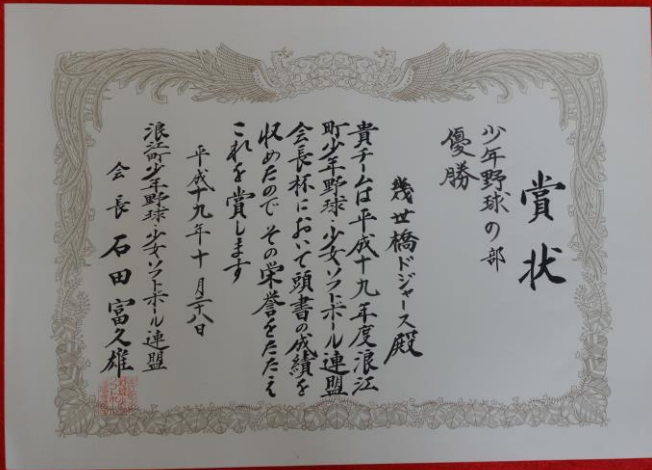 賞状
少年野球の部
優勝
幾世橋ドジャース殿
貴チームは平成十九年度浪江
町少年野球・少女ソフトボール連盟
会長杯において頭書の成績を
収めたので その栄誉をたたえ
これを賞します
平成十九年十月二十八日
浪江町少年野球・少女ソフトボール連盟
会長 石田富久雄